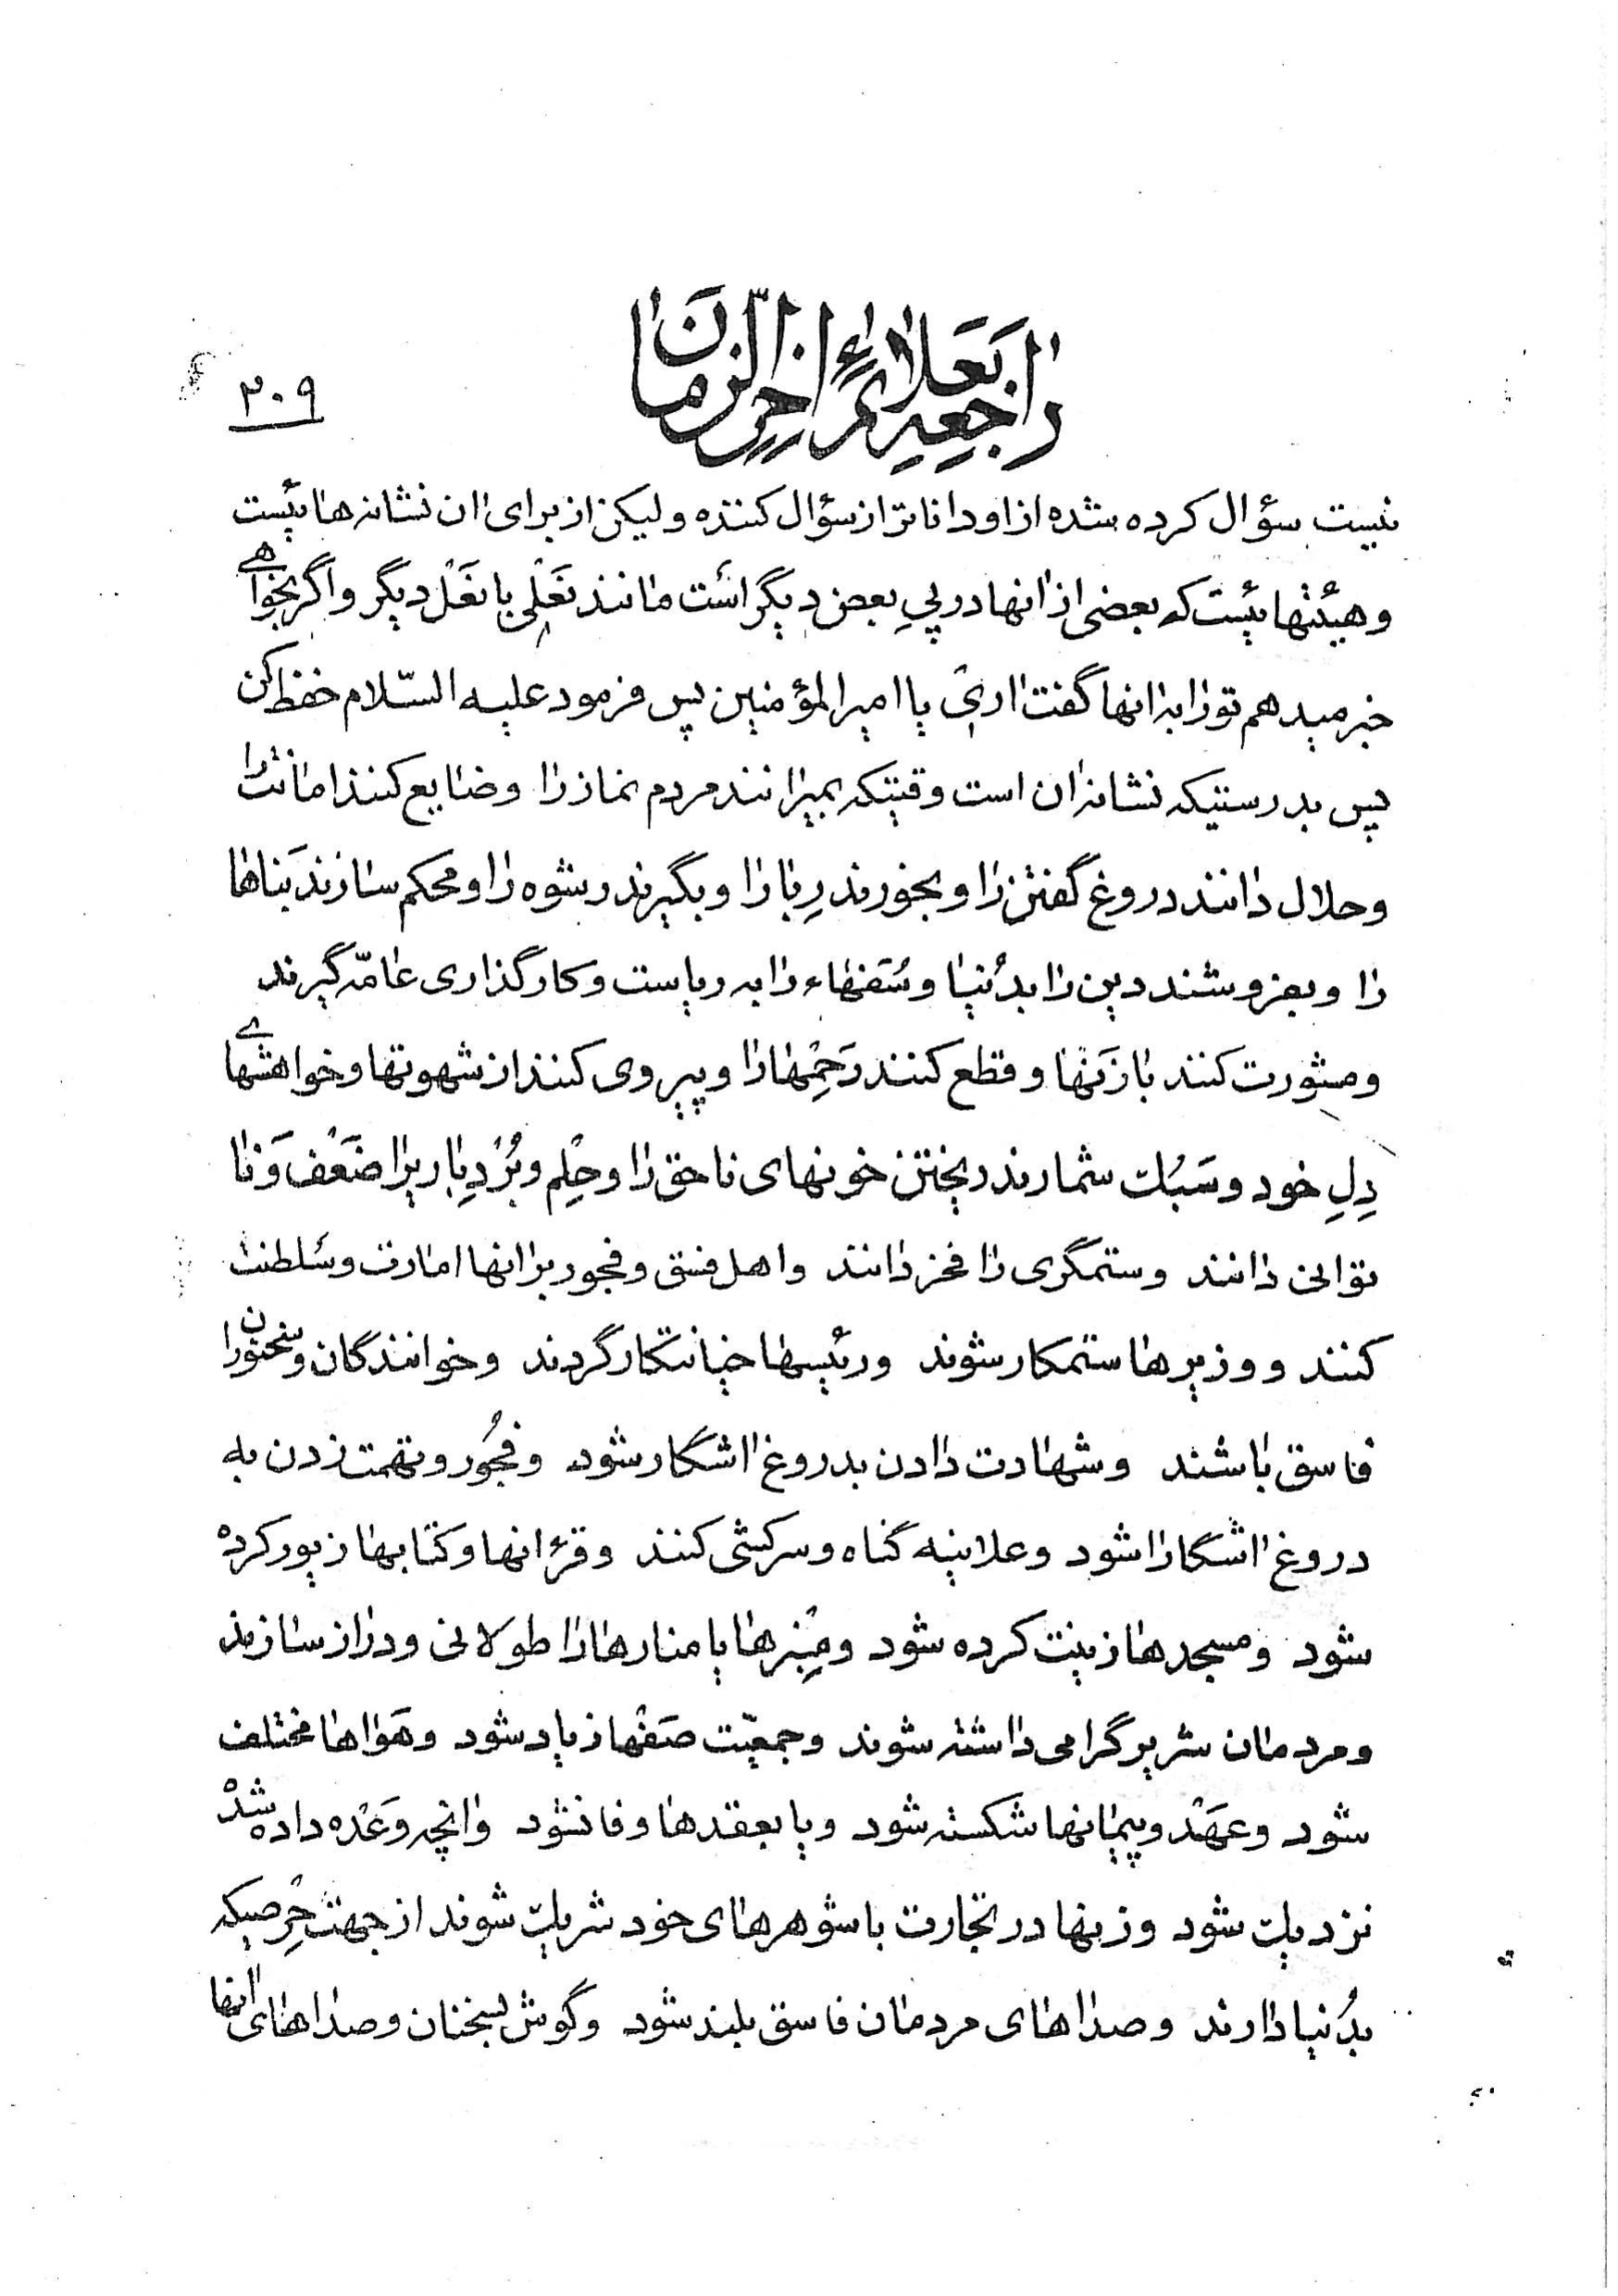 راجعه بعلائم اخر الزمان
۳۰۹
نیست سؤال کرده شده از او داناتر از سؤال کننده ولیکن از برای ان نشانه هائیست
و هیئتهائیست که بعضی از انها در پیِ بعض دیگر است مانند نَعْلی با نَعْل دیگر و اگر بخواهے
خبر میدهم تو را به انها گفت اری یا امیرالمؤمنین پس فرمود علیه السّلام حفظ کن
پس بدرستیکه نشانه ان است وقتیکه بمیرانند مردم نماز را و ضایع کنند امانترا
و حلال دانند دروغ گفتن را و بخورند رِبا را و بگیرند رشوه را و محکم سازند بَناها
را و بفروشند دین را بدُنیا و سُفَهاء را به ریاست و کارگذاری عامّه گیرند
و مشورت کنند با زَنها و قطع کنند رَحِمْها را و پیروی کنند از شهوتها و خواهشهاے
دِلِ خود و سَبُک شمارند ریختن خونهای ناحق را و حِلْم و بُرْدِباریرا ضَعْف وَ نا
توانی دانند و ستمگری را فخر دانند و اهل فسق و فجور بر انها امارت و سَلطنت
کنند و وزیرها ستمکار شوند و رئیسها خیانتکار گردند و خوانندگان و سخنوران
فاسق باشند و شهادت دادن بدروغ اشگار شود و فُجُور و تهمت زدن به
دروغ اشگارا شود و علانیه گناه و سرکشی کنند و قرءانها و کتابها زیور کرده
شود و مسجدها زینت کرده شود و مِنْبرها یا منارها را طولانی و دراز سازند
و مردمان شریر گرامی داشته شوند و جمعیّت صَفْها زیاد شود و هَواها مختلف
شود و عَهْد و پیمانها شکسته شود و یا بعقدها وفا نشود و انچه وَعْده داده شدْ
نزدیک شود و زنها در تجارت با شوهرهای خود شریک شوند از جهت حِرْصیکه
بدُنیا دارند و صداهای مردمان فاسق بلند شود و گوش بسخنان و صداهای انها